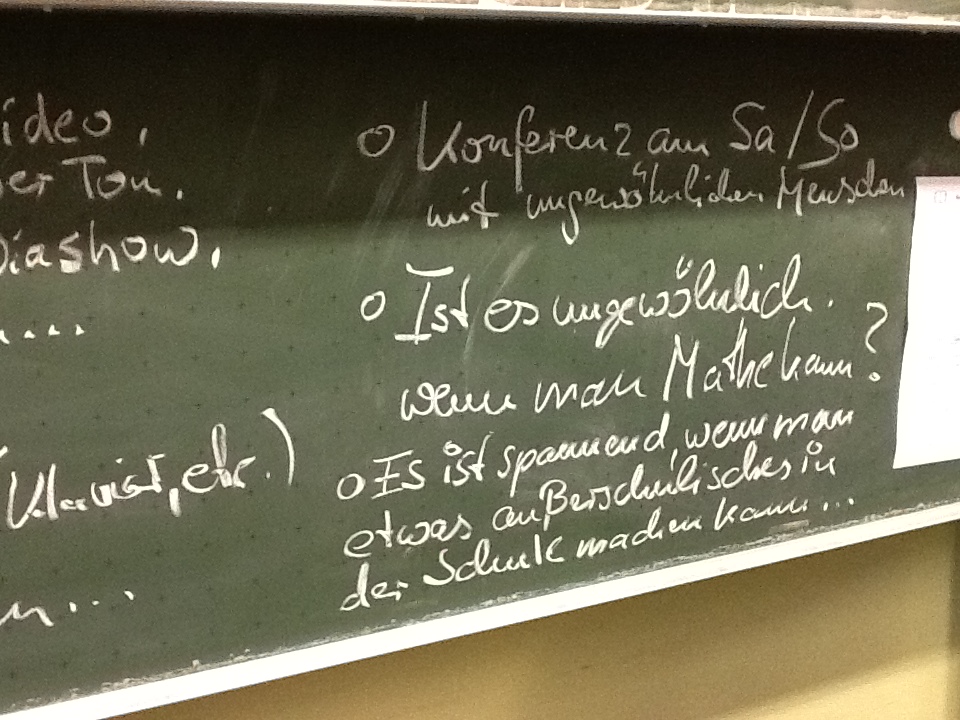 ideo,
er Ton.
Diashow,
....
(Klavier, etc.)
n...
o Konferenz am Sa/So
mit ungewöhnlichen Menschen
o Ist es ungewöhnlich.
wenn man Mathe kann?
o Es ist spannend, wenn man
etwas außerschulisches in
der Schule machen kann...